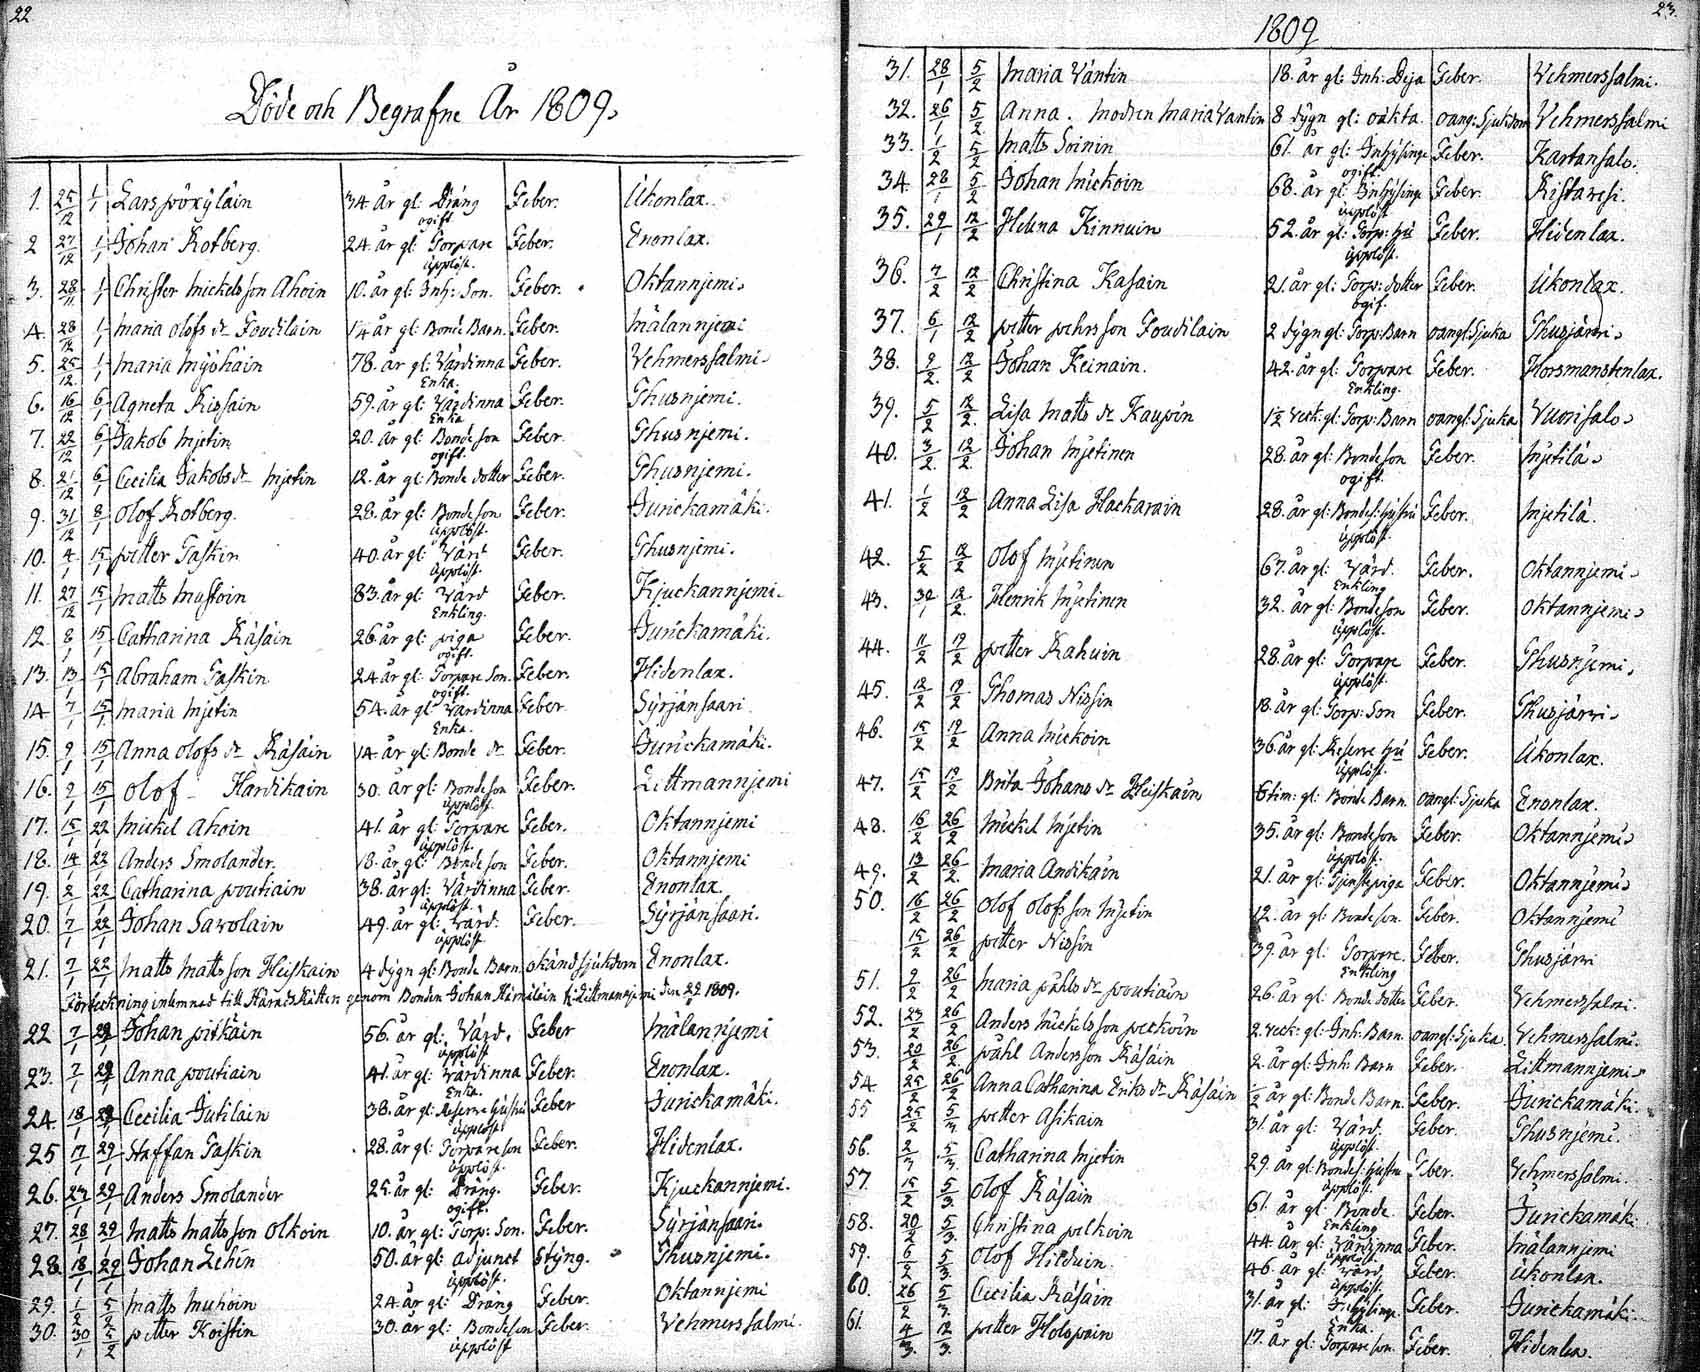 22
Döde och Begrafne År 1809.
1. 25/12 1/1 Lars pöxyläin 34. år gl: Dräng ogift Feber. Ukonlax.
2 27/12 1/1 Johan Rotberg. 24. år gl: Torpare upplöst. Feber. Enonlax.
3. 28/11 1/1 Christer Mickelsson Ahoin 10. år gl: Inh: Son. Feber. Oktannjemi.
4. 28/12 1/1 Maria Olofs dr Toudilain 1/4 år gl: Bonde Barn. Feber. Mälannjemi
5. 25/12 1/1 Maria Myöhäin 78. år gl: Värdinna Enka. Feber. Vehmerssalmi.
6. 16/12 6/1 Agneta Rissain 59. år gl: Värdinna Enka Feber. Thusnjemi.
7. 22/12 6/1 Jakob Mjetin 20. år gl: Bonde son ogift. Feber. Thusnjemi.
8. 21/12 6/1 Cecilia Jakobs dr Mjetin 12. år gl: Bonde dotter Feber. Thusnjemi.
9. 31/12 8/1 Olof Rotberg. 28. år gl: Bonde son upplöst. Feber. Jurickamäki.
10. 4/1 15/1 petter Taskin 40. år gl: Värd upplöst. Feber. Thusnjemi.
11. 27/12 15/1 Matts Mustoin 83. år gl: Värd Enkling. Feber. Kjuckannjemi.
12. 8/1 15/1 Catharina Räsäin 26. år gl: piga ogift. Feber. Jurickamäki.
13. 13/1 15/1 Abraham Taskin 24 år gl: Torpare Son. ogift. Feber. Hidenlax.
14 7/1 15/1 Maria Mjetin 54. år gl Värdinna Enka. Feber Syrjänsaari
15. 9/1 15/1 Anna Olofs dr Räsäin 14. år gl: Bonde dr Feber. Jurickamäki.
16. 2/1 15/1 Olof - Hardikain 30. år gl: Bonde son upplöst. Feber. Littmannjemi
17. 15/1 22/1 Mickel Ahoin 41. år gl: Torpare upplöst. Feber. Oktannjemi
18. 14/1 22/1 Anders Smolander. 18. år gl: Bonde son Feber. Oktannjemi
19. 2/1 22/1 Catharina poutiain 38. år gl: Värdinna upplöst Feber. Enonlax.
20. 7/1 22/1 Johan Savolain 49. år gl: Värd. upplöst Feber. Syrjänsaari.
21. 7/1 22/1 Matts Matts son Heiskain 4 dygn gl: Bonde Barn. okänd sjukdom Enonlax.
Förteckning inlemnad till Härads Rätten genom Bonden Johan Hämäläin i Littmannjemi den 22/1 1809.
22 7/1 29/1 Johan pitkain 56. år gl: Värd. upplöst Feber Mälannjemi
23. 7/1 29/1 Anna poutiain 41. år gl: Värdinna Enka. Feber. Enonlax.
24. 18/1 29/1 Cecilia Jutilain 38. år gl: Reserve Hustru upplöst Feber Jurickamäki.
25 17/1 29/1 Staffan Taskin 28. år gl: Torpare son upplöst. Feber. Hidenlax.
26. 23/1 29/1 Anders Smolander 25. år gl: Dräng. ogift. Feber. Kjuckannjemi.
27. 28/1 29/1 Matts Matts son Olkoin 10. år gl: Torp: Son. Feber. Syrjänsaari.
28. 18/1 29/1 Johan Lehin 50. år gl: Adjunct upplöst. Styng. Thusnjemi.
29. 1/2 5/2 Matts Muhoin 24. år gl: Dräng Feber. Oktannjemi
30. 30/1 5/2 petter Koistin 30. år gl: Bonde son upplöst Feber. Vehmerssalmi.
23.
1809
31. 28/1 5/2 Maria Väntin 18. år gl: Inh: Deja Feber. Vehmerssalmi.
32. 26/1 5/2 Anna. Modren Maria Vantin 8 dygn gl: oäkta. oang: Sjukdom Vehmerssalmi
33. 1/2 5/2 Matts Soinin 61. år gl: Inhysinge ogift. Feber. Kartansalo.
34. 28/1 5/2 Johan Mickoin 68. år gl: Inhysinge upplöst Feber. Ristaresi.
35. 29/1 12/2 Helena Kinnuin 52. år gl: Torp: Hu upplöst. Feber. Hidenlax.
36. 7/2 12/2 Christina Kasain 21. år gl: Torp: dotter ogif. Feber. Ukonlax.
37. 6/1 12/2 petter pehrs son Toudilain 2 dygn gl: Torp: Barn oangl: Sjuka Thusjärvi.
38. 9/2 12/2 Johan Keinain. 42. år gl: Torpare Enkling. Feber. Horsmanstenlax.
39. 5/2 12/2 Lisa Matts dr Kaupin 1 1/2 veck: gl: Torp: Barn oangl: Sjuka Vuorisalo.
40. 3/2 12/2 Johan Mjetinen 28. år gl: Bonde son ogift. Feber. Mjetilä.
41. 1/2 12/2 Anna Lisa Hackarain 28. år gl: Bondes: Hustru upplöst. Feber. Mjetilä.
42. 5/2 12/2 Olof Mjetinen 67. år gl: Värd. Enkling Feber. Oktannjemi.
43. 30/1 12/2 Henrik Mjetinen 32. år gl: Bonde son upplöst. Feber. Oktannjemi.
44. 11/2 19/2 petter Kahuin 28. år gl: Torpare upplöst. Feber. Thusnjemi.
45. 12/2 19/2 Thomas Nissin 18. år gl: Torp: Son Feber. Thusjärvi.
46. 15/2 19/2 Anna Mickoin 36. år gl: Reserve Hu upplöst. Feber. Ukonlax.
47. 15/2 19/2 Brita Johans dr Heiskain 6 tim: gl: Bonde Barn. oangl: Sjuka Enonlax.
48. 16/2 26/2 Mickel Mjetin 35. år gl: Bonde son upplöst. Feber. Oktannjemi.
49. 13/2 26/2 Maria Andikain 21. år gl: Tjenstepiga Feber. Oktannjemi.
50. 16/2 26/2 Olof Olofs son Mjetin 12. år gl: Bonde son. Feber. Oktannjemi
15/2 26/2 petter Nissin 39. år gl: Torpare. Enkling Feber. Thusjärvi
51. 9/2 26/2 Maria påhls dr poutiain 26. år gl: Bonde dotter Feber. Vehmerssalmi.
52. 23/2 26/2 Anders Mickelsson peckoin 2. veck: gl: Inh: Barn. oangl: Sjuka. Vehmerssalmi.
53. 20/2 26/2 påhl Andersson Räsäin 2. år gl: Inh: Barn Feber. Littmannjemi.
54 25/2 26/2 Anna Catharina Eriks dr Räsäin 1/2 år gl: Bonde Barn. Feber. Jurickamäki.
55 25/2 5/3 petter Asikain 31. år gl: Värd. upplöst Feber. Thusnjemi.
56. 2/3 5/3 Catharina Mjetin 29. år gl: Bondes: Hustru upplöst. Feber. Vehmerssalmi.
57. 15/2 5/3 Olof Räsäin 61. år gl: Bonde Enkling Feber. Jurickamäki.
58. 20/2 5/3 Christina pelkoin 44. år gl: Värdinna upplöst. Feber. Mälannjemi
59. 6/2 5/3 Olof Hilduin. 46. år gl: Värd. upplöst Feber. Ukonlax.
60. 26/2 5/3 Cecilia Räsäin 31. år gl: Inhysinge. Enka. Feber. Jurickamäki.
61. 4/3 12/3 petter Holopain 17. år gl: Torpare son. Feber. Hidenlax.